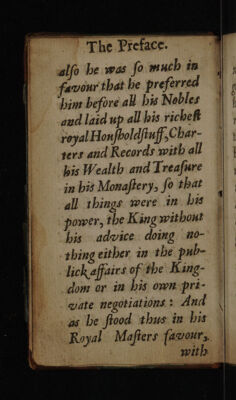 The Preface.
alſo he was ſo much in
favour that he preferred
him before all his Nobles
and laid up all his richeſt
royal Houſholdſtuff, Char-
ters and Records with all
his Wealth and Treaſure
in his Monaſtery, ſo that
all things were in his
power, the King without
his advice doing no-
thing either in the pub-
lick affairs of the King-
dom or in his own pri-
vate negotiations : And
as he ſtood thus in his
Royal Maſters favour,
with